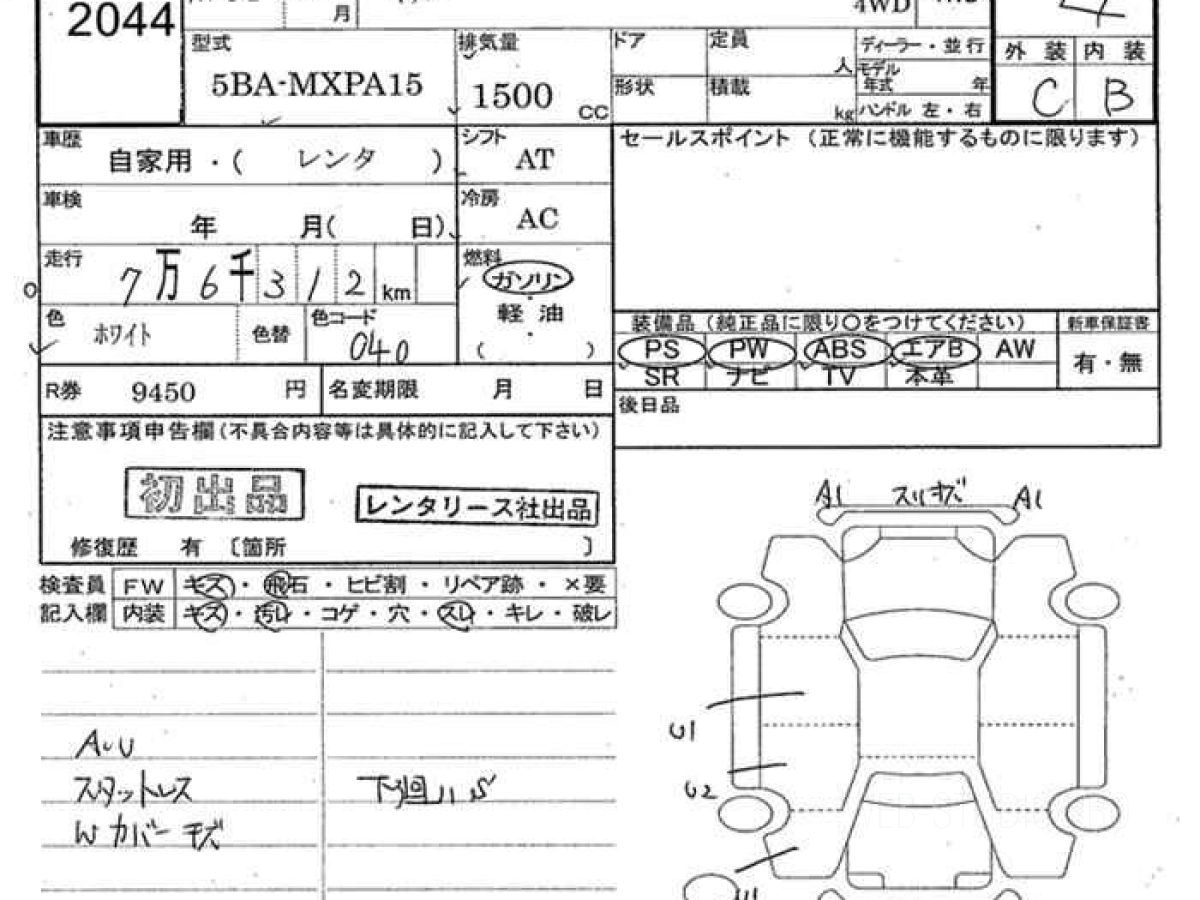 2044
月
4WD
4
型式
5BA-MXPA15
排気量
1500 CC
ドア
定員
人
ディーラー・並行
モデル年式 年
形状
積載
kg
ハンドル 左・右
外装 内装
C B
車歴
自家用・( レンタ )
シフト
AT
セールスポイント (正常に機能するものに限ります)
車検
年 月( 日)
冷房
AC
走行
7万6千312km
燃料
ガソリン
軽油
( ・ )
色
ホワイト
色替
色コード
040
装備品 (純正品に限り○をつけてください)
新車保証書
PS PW ABS エアB AW
SR ナビ TV 本革
有・無
R券 9450 円
名変期限 月 日
後日品
注意事項申告欄(不具合内容等は具体的に記入して下さい)
初出品
レンタリース社出品
修復歴 有 〔箇所 〕
検査員
記入欄
FW キズ・飛石・ヒビ割・リペア跡・×要
内装 キズ・汚レ・コゲ・穴・スレ・キレ・破レ
AUU
スタットレス
Wカバーキズ
下廻りハS
A1 スリキズ A1
U1
U2